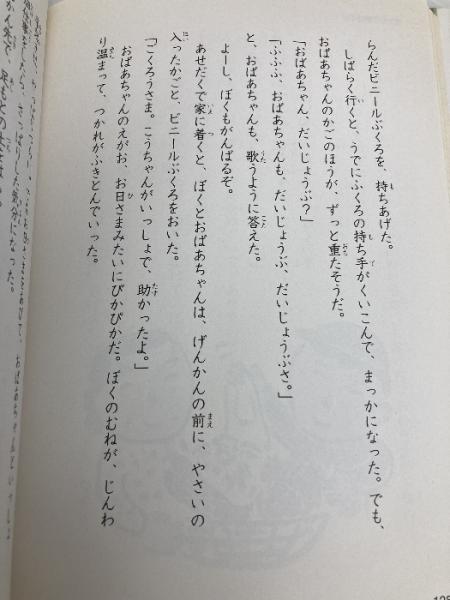 らんだビニールぶくろを、持ちあげた。
しばらく行くと、うでにふくろの持ち手がくいこんで、まっかになった。でも、
おばあちゃんのかごのほうが、ずっと重たそうだ。
「おばあちゃん、だいじょうぶ？」
「ふふふ、おばあちゃんも、だいじょうぶ、だいじょうぶさ。」
と、おばあちゃんも、歌うように答えた。
よーし、ぼくもがんばるぞ。
あせだくで家に着くと、ぼくとおばあちゃんは、げんかんの前に、やさいの
入ったかごと、ビニールぶくろをおいた。
「ごくろうさま。こうちゃんがいっしょで、助かったよ。」
おばあちゃんのえがお、お日さまみたいにぴかぴかだ。ぼくのむねが、じんわ
り温まって、つかれがふきとんでいった。